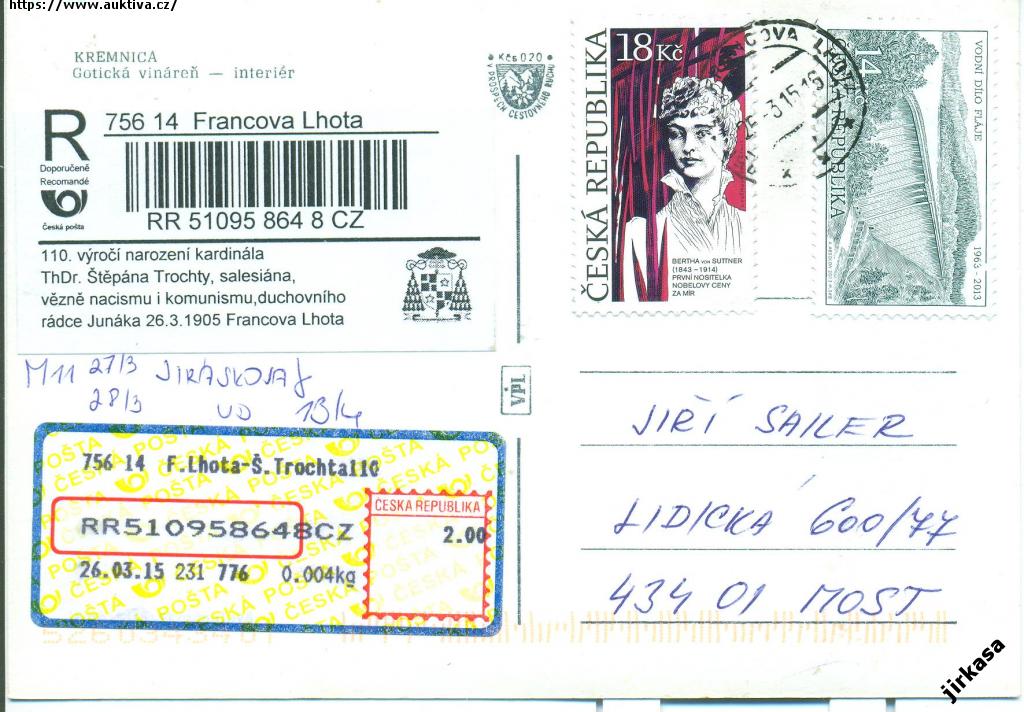 https://www.auktiva.cz/
KREMNICA
Gotická vináreň — interiér
• Kčs 0 20 •
V PROSPĚCH CESTOVNÉHO RUCHU
R
Doporučeně
Recomandé
Česká pošta
756 14 Francova Lhota
RR 51095 864 8 CZ
110. výročí narození kardinála
ThDr. Štěpána Trochty, salesiána,
vězně nacismu i komunismu,duchovního
rádce Junáka 26.3.1905 Francova Lhota
ČESKÁ REPUBLIKA
18 Kč
BERTHA VON SUTTNER
(1843 – 1914)
PRVNÍ NOSITELKA
NOBELOVY CENY
ZA MÍR
14
REPUBLIKA
VODNÍ DÍLO FLÁJE
1963 - 2013
COVA LHOT
-3.15-16
M11 27/3
28/3
VPL
756 14 F.Lhota-Š.Trochta110
RR510958648CZ
26.03.15 231 776 0.004kg
ČESKÁ REPUBLIKA
2.00
ČESKÁ POŠTA
JIŘÍ SAILER
LIDICKÁ 600/77
434 01 MOST
jirkasa